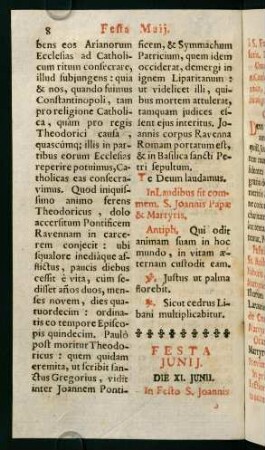 8 Festa Maij.
bens eos Arianorum
Ecclesias ad Catholi-
cum ritum consecrare,
illud subjungens: quia
& nos, quando fuimus
Constantinopoli, tam
pro religione Catholi-
ca, quàm pro regis
Theodorici causa,
quascúmq; illis in par-
tibus eorum Ecclesias
reperire potuimus, Ca-
tholicas eas consecra-
vimus. Quod iniquissi-
mo animo ferens
Theodoricus, dolo
accersitum Pontificem
Ravennam in carce-
rem conjecit: ubi
squalore inediàque af-
flictus, paucis diebus
cessit è vita, cúm se-
disset años duos, men-
ses novem, dies qua-
tuordecim: ordina-
tis eo tempore Episco-
pis quindecim. Pauló
post moritur Theodo-
ricus: quem quidam
eremita, ut scribit san-
ctus Gregorius, vidit
inter Joannem Ponti-
ficem, & Symmachum
Patricium, quem idem
occiderat, demergi in
ignem Liparitanum:
ut videlicet illi, qui-
bus mortem attulerat,
tamquam judices es-
sent ejus interitus, Jo-
annis corpus Ravenna
Romam portatum est,
& in Basilica sancti Pe-
tri sepultum.
Te Deum laudamus.
In Laudibus fit com-
mem. S. Joannis Papæ
& Martyris,
Antiph, Qui odit
animam suam in hoc
mundo, in vitam æ-
ternam custodit eam.
℣. Justus ut palma
florebit.
℟. Sicut cedrus Li-
bani multiplicabitur.
FESTA
JUNIJ.
DIE XI. JUNII.
In Festo S. Joannis